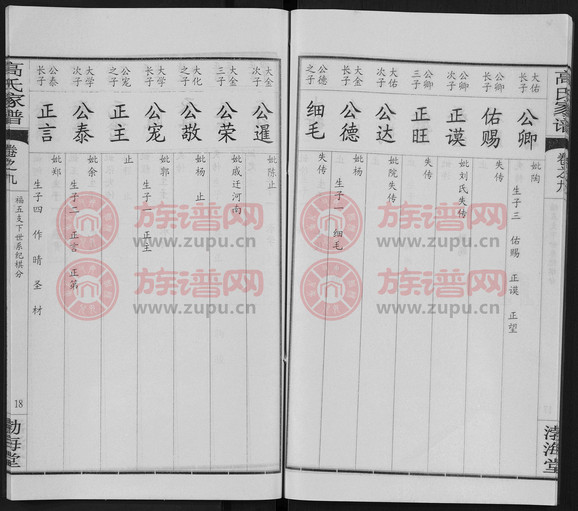 高氏家谱
卷之九
渤海堂
大佑长子
公卿
妣陶
生子三 佑赐 正谟 正望
公卿长子
佑赐
失传
公卿次子
正谟
妣刘氏失传
公卿三子
正旺
失传
大佑次子
公达
妣院失传
大金长子
公德
妣杨
生子一 细毛
公德之子
细毛
失传
大金次子
公暹
妣陈止
大金三子
公荣
妣戚迁河南
大化之子
公敬
妣杨 止
大学长子
公宠
妣郭
生子一 正主
公宠之子
正主
止
大学次子
公泰
妣余
生子二 正言 正第
公泰长子
正言
妣郑
生子四 作 晴 圣 材
高氏家谱
卷之九
福五支下世系纪棋分
18
渤海堂
族谱网
www.zupu.cn
族谱网
www.zupu.cn
族谱网
www.zupu.cn
族谱网
www.zupu.cn